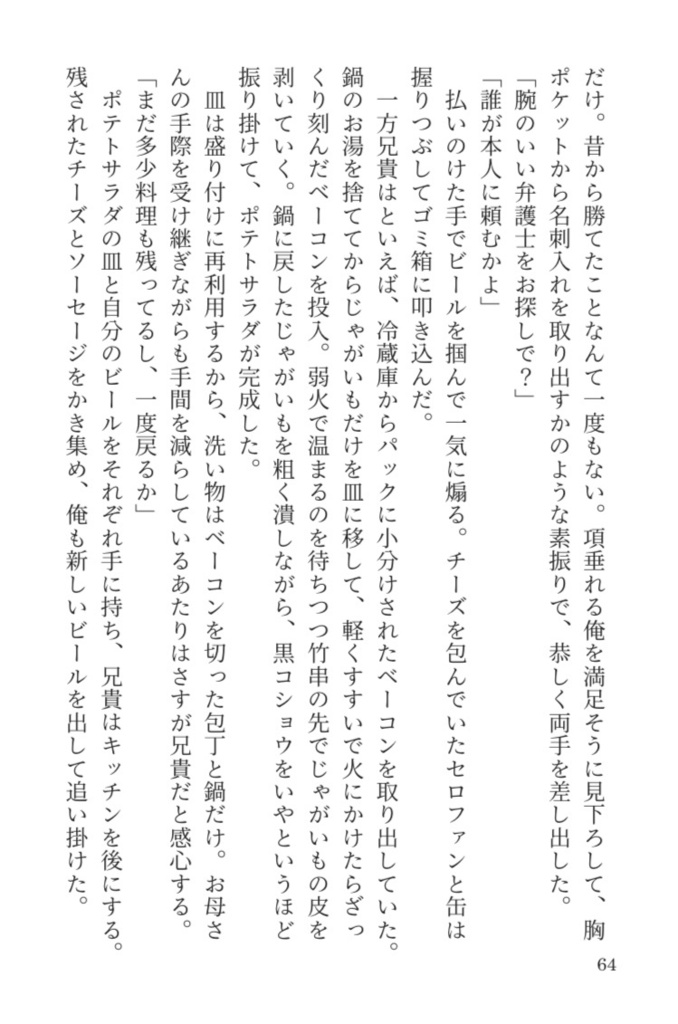 だけ。昔から勝てたことなんて一度もない。項垂れる俺を満足そうに見下ろして、胸
ポケットから名刺入れを取り出すかのような素振りで、恭しく両手を差し出した。
「腕のいい弁護士をお探しで？」
「誰が本人に頼むかよ」
　払いのけた手でビールを掴んで一気に煽る。チーズを包んでいたセロファンと缶は
握りつぶしてゴミ箱に叩き込んだ。
　一方兄貴はといえば、冷蔵庫からパックに小分けされたベーコンを取り出していた。
鍋のお湯を捨ててからじゃがいもだけを皿に移して、軽くすすいで火にかけたらざっ
くり刻んだベーコンを投入。弱火で温まるのを待ちつつ竹串の先でじゃがいもの皮を
剥いていく。鍋に戻したじゃがいもを粗く潰しながら、黒コショウをいやというほど
振り掛けて、ポテトサラダが完成した。
　皿は盛り付けに再利用するから、洗い物はベーコンを切った包丁と鍋だけ。お母さ
んの手際を受け継ぎながらも手間を減らしているあたりはさすが兄貴だと感心する。
「まだ多少料理も残ってるし、一度戻るか」
　ポテトサラダの皿と自分のビールをそれぞれ手に持ち、兄貴はキッチンを後にする。
残されたチーズとソーセージをかき集め、俺も新しいビールを出して追い掛けた。
64